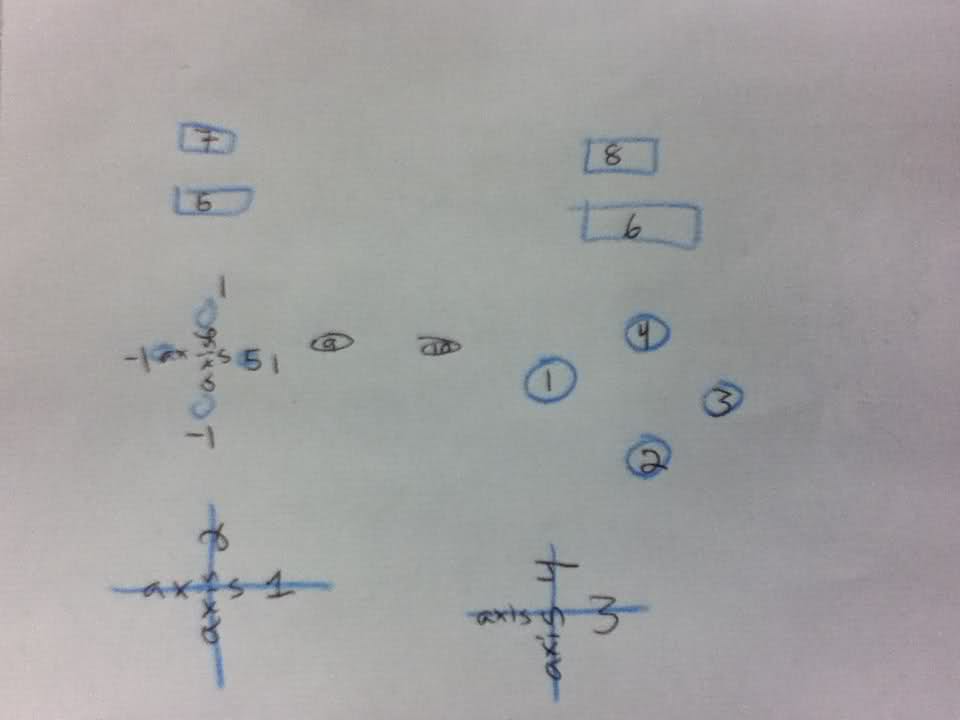 7
8
5
6
1
-1 axis 5 1
axis 6
-1
9
10
1
4
3
2
axis 1
axis 2
axis 3
axis 4